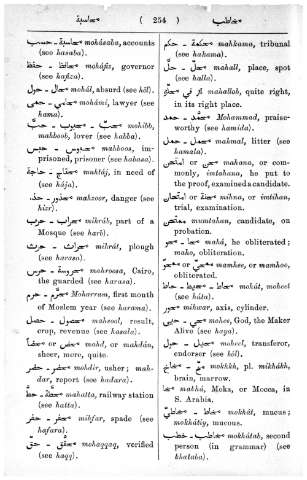 محاسبة ( 254 ) محاطب
محاسبة – حسب mohásaba, accounts
(see hasaba).
محافظ – حفظ mohâfiz, governor
(see hafiza).
محال – حول mohâl, absurd (see hôl).
محامي – حمى mohâmi, lawyer (see
hama).
محبّ – محبوب – حبّ mohibb,
mahboob, lover (see habba).
محبوس – حبس mahboos, im-
prisoned, prisoner (see habasa).
محتاج – حاجة mahtâj, in need of
(see hâja).
محذور – حذر mahzoor, danger (see
hizr).
محراب – حرب mihrâb, part of a
Mosque (see harb).
محراث – حرث mihrât, plough
(see harasa).
محروسة – حرس mahroosa, Cairo,
the guarded (see harasa).
محرّم – حرم Moharram, first month
of Moslem year (see harama).
محصول – حصل mahsool, result,
crop, revenue (see hasala).
محض or محضاً mahd, or mahdán,
sheer, mere, quite.
محضر – حضر mohdir, usher; mah-
dar, report (see hadara).
محطّة – حطّ mahatta, railway station
(see hatta).
محفر – حفر mihfar, spade (see
hafara).
محقّق – حقّ mohaqqaq, verified
(see haqq).
محكمة – حكم mahkama, tribunal
(see hakama).
محلّ – حلّ mahall, place, spot
(see halla).
في محلّه mahalloh, quite right,
in its right place.
محمّد – حمد Mohammed, praise-
worthy (see hamida).
محمل – حمل mahmal, litter (see
hamala).
محن or امتحن mahana, or com-
monly, imtahana, he put to
the proof, examined a candidate.
محنة or امتحان mihna, or imtihan,
trial, examination.
ممتحن mumtahan, candidate, on
probation.
محا – محو mahá, he obliterated;
maho, obliteration.
محيّ or محوّ mamhee, or mamhoo,
obliterated.
محاط – محيط – حاط mohát, moheet
(see háta).
محور mihwar, axis, cylinder.
محيي – حيي mohee, God, the Maker
Alive (see haya).
محيل – حول moheel, transferor,
endorser (see hôl).
مخّ – مخاخ mokhkh, pl. mikhâkh,
brain, marrow.
مخا mukhá, Moka, or Mocca, in
S. Arabia.
مخاط – مخاطيّ mokhát, mucus;
mokhâtiy, mucous.
مخاطب – خطب mokhâtab, second
person (in grammar) (see
khataba).